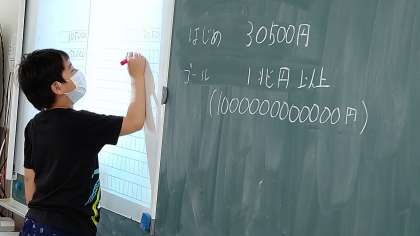 はじめ 30500円
ゴール 1兆円以上
(1000000000000円)